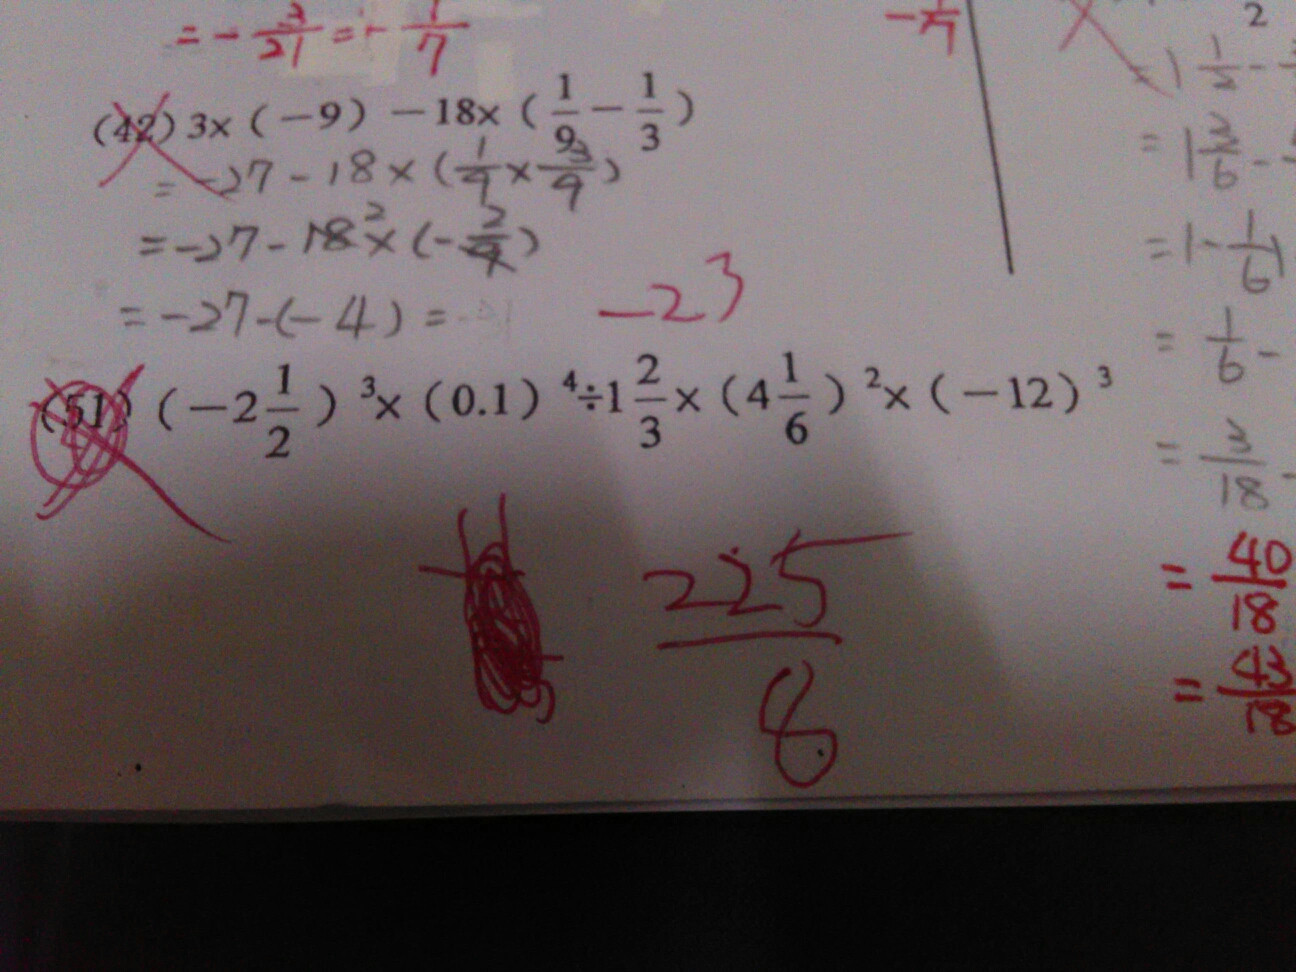 = - 3/21 = - 1/7
- 1/7
(42) 3× (-9) -18× (1/9 - 1/3)
= -27 - 18 × (1/9 × 3/9)
= -27 - 18² × (- 2/9)
= -27 -(- 4) =
-23
(51) (-2 1/2) ³× (0.1) ⁴÷1 2/3 × (4 1/6) ²× (-12) ³
225/8
2
= 1 1/2 -
= 1 3/6 -
= 1 - 1/6
= 1/6 -
= 3/18 -
= 40/18
= 43/18